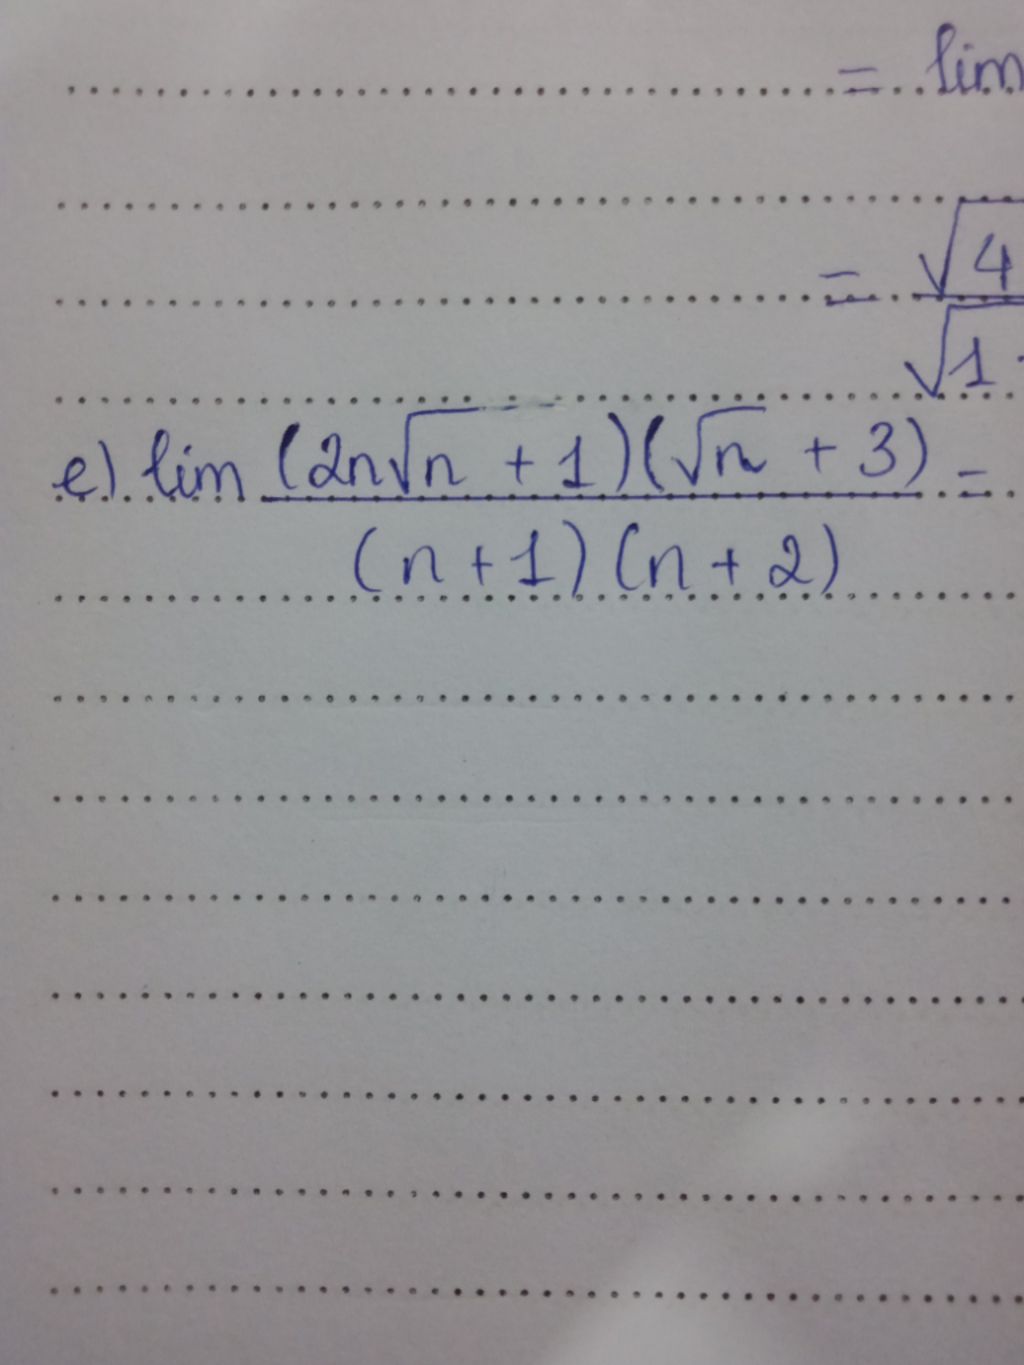 = lim
= √4
√1
e) lim (2n√n + 1)(√n + 3) =
(n + 1) (n + 2)